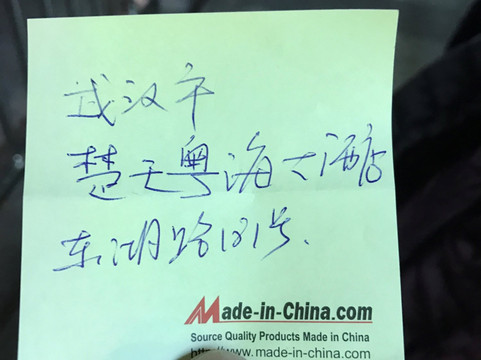 武汉市
楚天粤海大酒店
东湖路181号.
Made-in-China.com
Source Quality Products Made in China
http://www.made-in-china.com